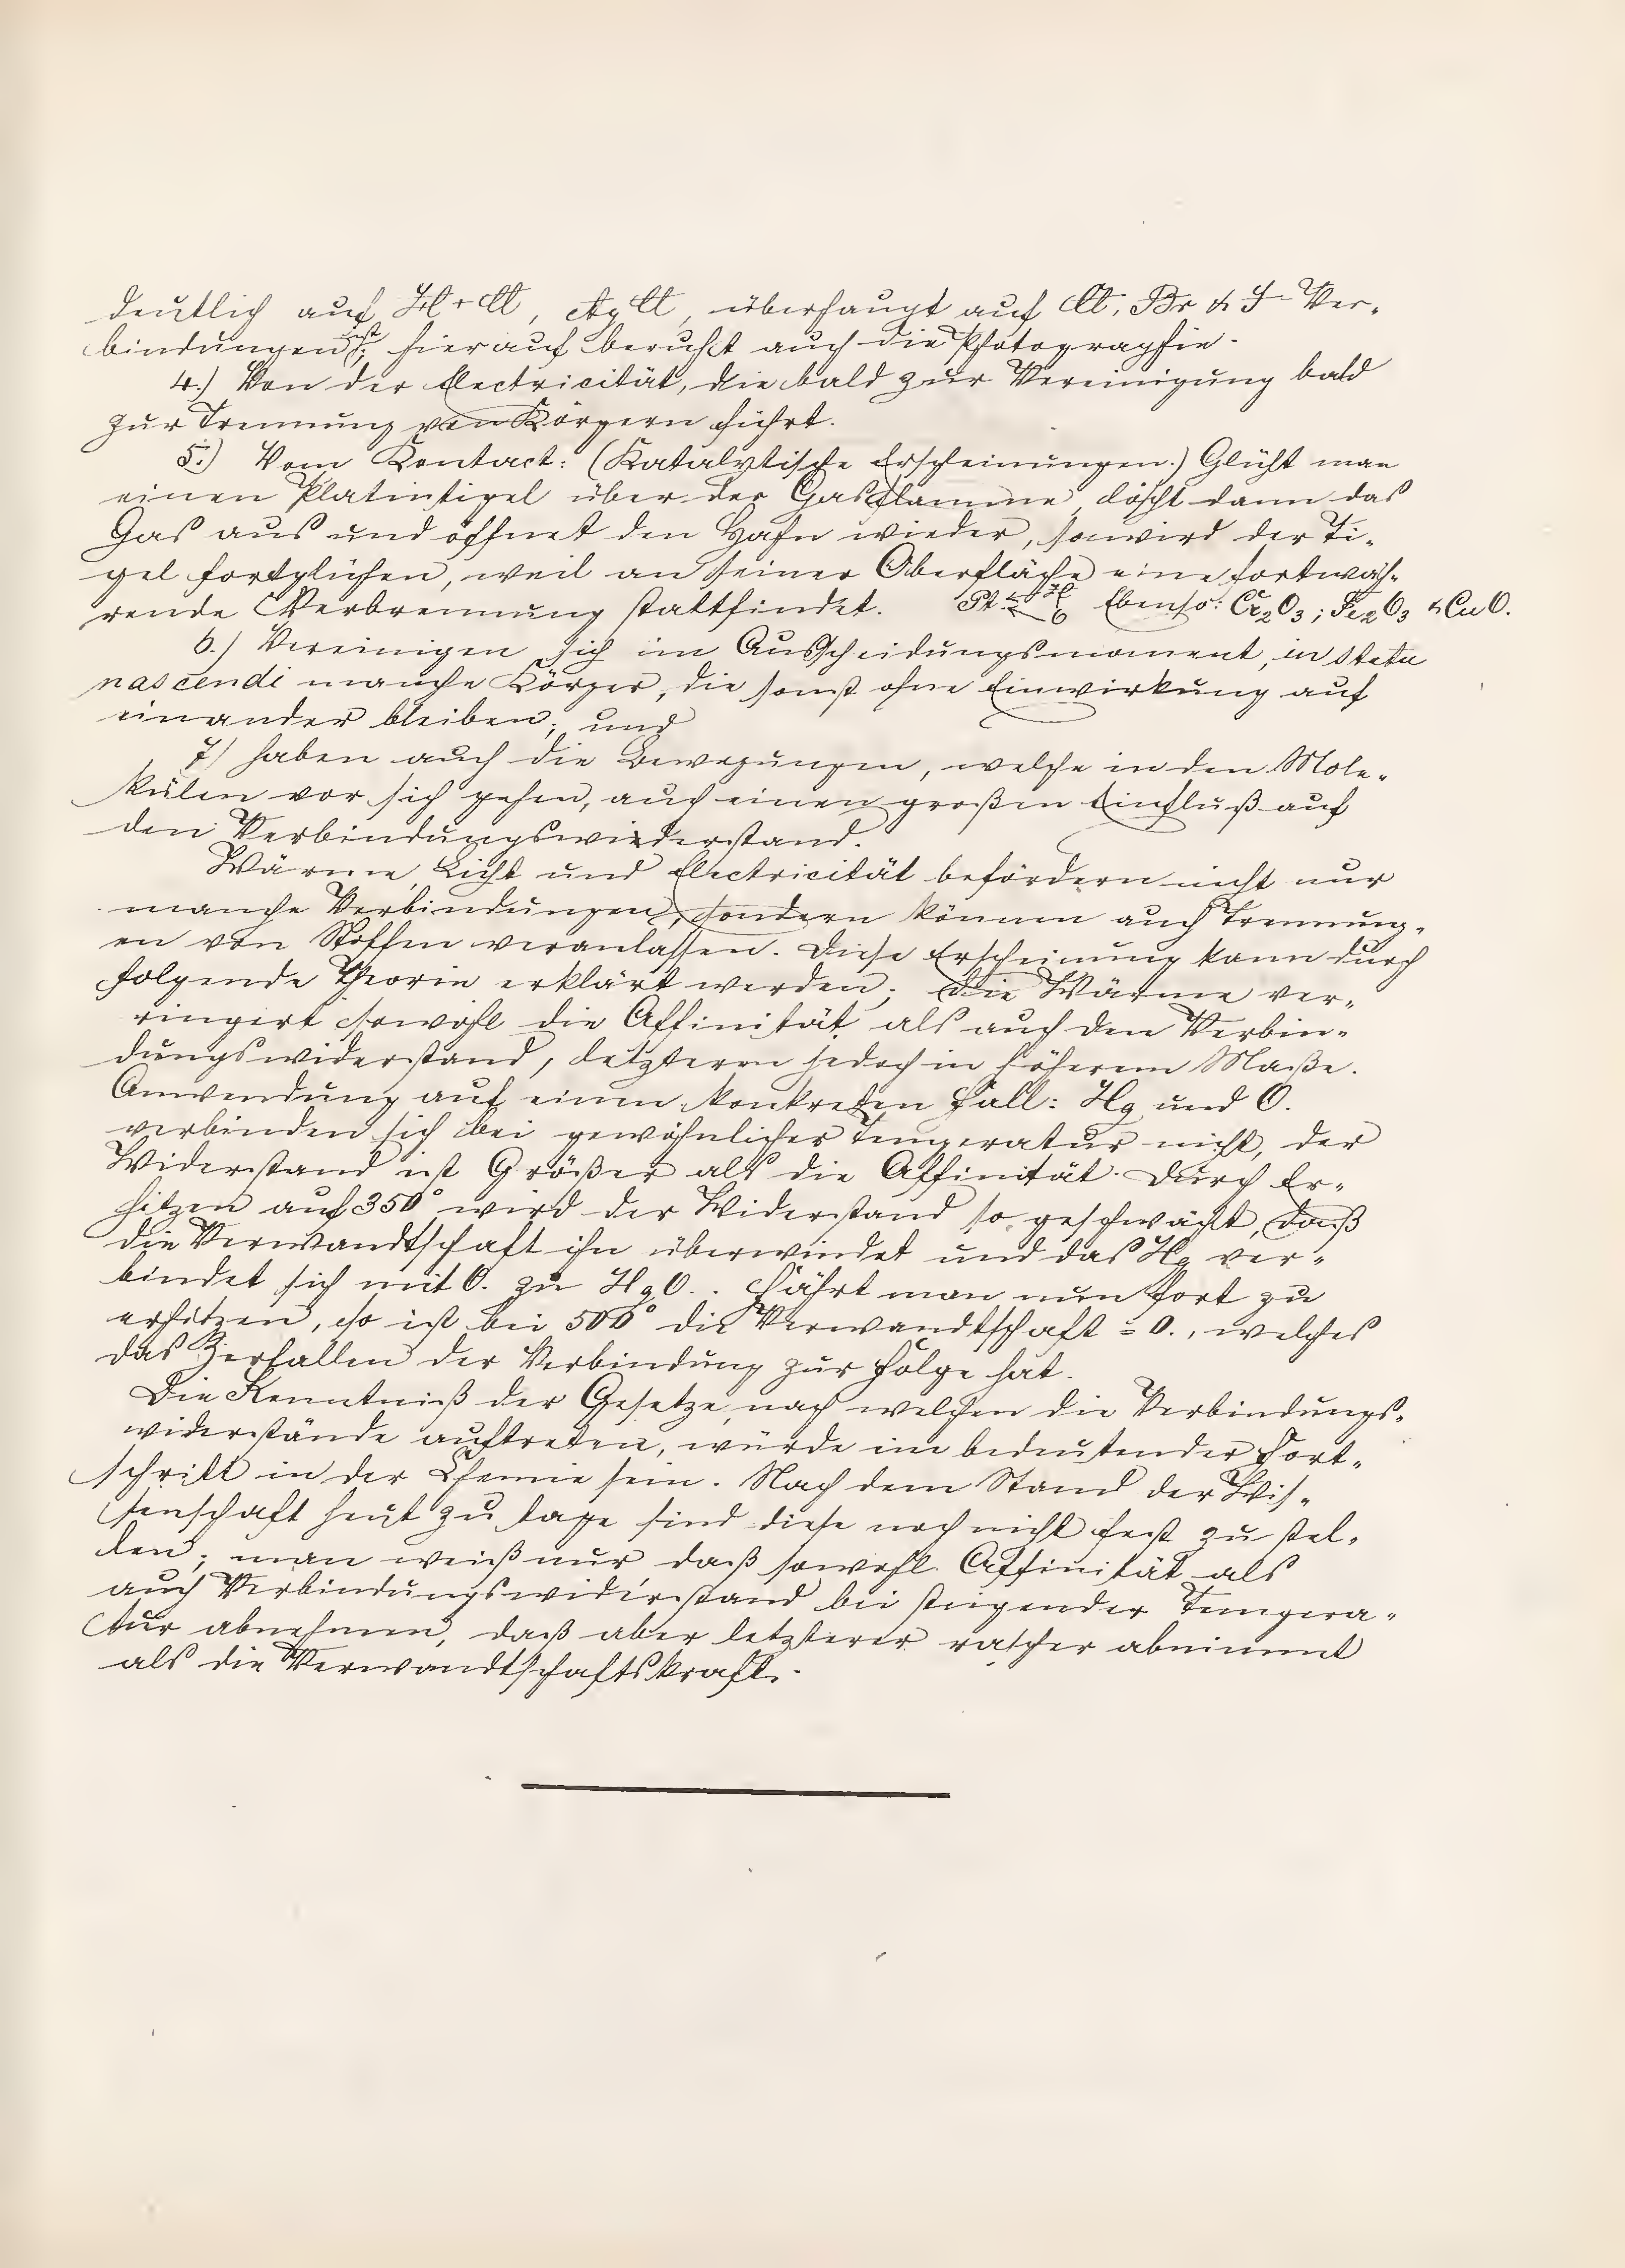 deutlich auf H + Cl, AgCl, überhaupt auf Cl, Br & J-Ver-
bindungen ist; hierauf beruht auch die Photographie.
4.) Von der Electricität, die bald zur Vereinigung bald
zur Trennung von Körpern führt.
5.) Vom Kontact: (Katalytische Erscheinungen.) Glüht man
einen Platintigel über der Gasflamme, löscht dann das
Gas aus und öffnet den Hahn wieder, so wird der Ti-
gel fortglühen, weil an seiner Oberfläche eine fortwäh-
rende Verbrennung stattfindet. Pt H O Ebenso: Cr2O3; Fe2O3 & CuO.
6.) Vereinigen sich im Ausscheidungsmoment, in statu
nascendi manche Körper, die sonst ohne Einwirkung auf
einander bleiben; und
7) haben auch die Bewegungen, welche in den Mole-
külen vor sich gehen, auch einen großen Einfluß auf
den Verbindungswiederstand.
Wärme, Licht und Electricität befördern nicht nur
manche Verbindungen, sondern können auch Trennung-
en von Stoffen veranlassen. Diese Erscheinung kann durch
folgende Theorie erklärt werden; die Wärme ver-
ringert sowohl die Affinität als auch den Verbin-
dungswiderstand, letzteren jedoch in höherem Maße.
Anwendung auf einen konkreten Fall: Hg und O.
verbinden sich bei gewöhnlicher Temperatur nicht, der
Widerstand ist Größer als die Affinität. Durch Er-
hitzen auf 350° wird der Widerstand so geschwächt, daß
die Verwandtschaft ihn überwindet und das Hg ver-
bindet sich mit O. zu HgO.. Fährt man nun fort zu
erhitzen, so ist bei 500° die Verwandtschaft = 0., welches
das Zerfallen der Verbindung zur Folge hat.
Die Kenntniß der Gesetze, nach welchen die Verbindungs-
widerstände auftreten, würde ein bedeutender Fort-
schritt in der Chemie sein. Nach dem Stand der Wis-
senschaft heut zu tage sind diese noch nicht fest zu stel-
len; man weiß nur, daß sowohl Affinität als
auch Verbindungswiderstand bei steigender Tempera-
tur abnehmen, daß aber letzterer rascher abnimmt
als die Verwandtschaftskraft.